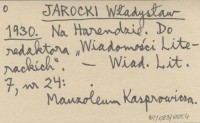 0
JAROCKI Władysław
1930. Na Harendzie. Do
redaktora „Wiadomości Lite-
rackich". — Wiad. Lit.
7, nr 24:
Mauzoleum Kasprowicza.